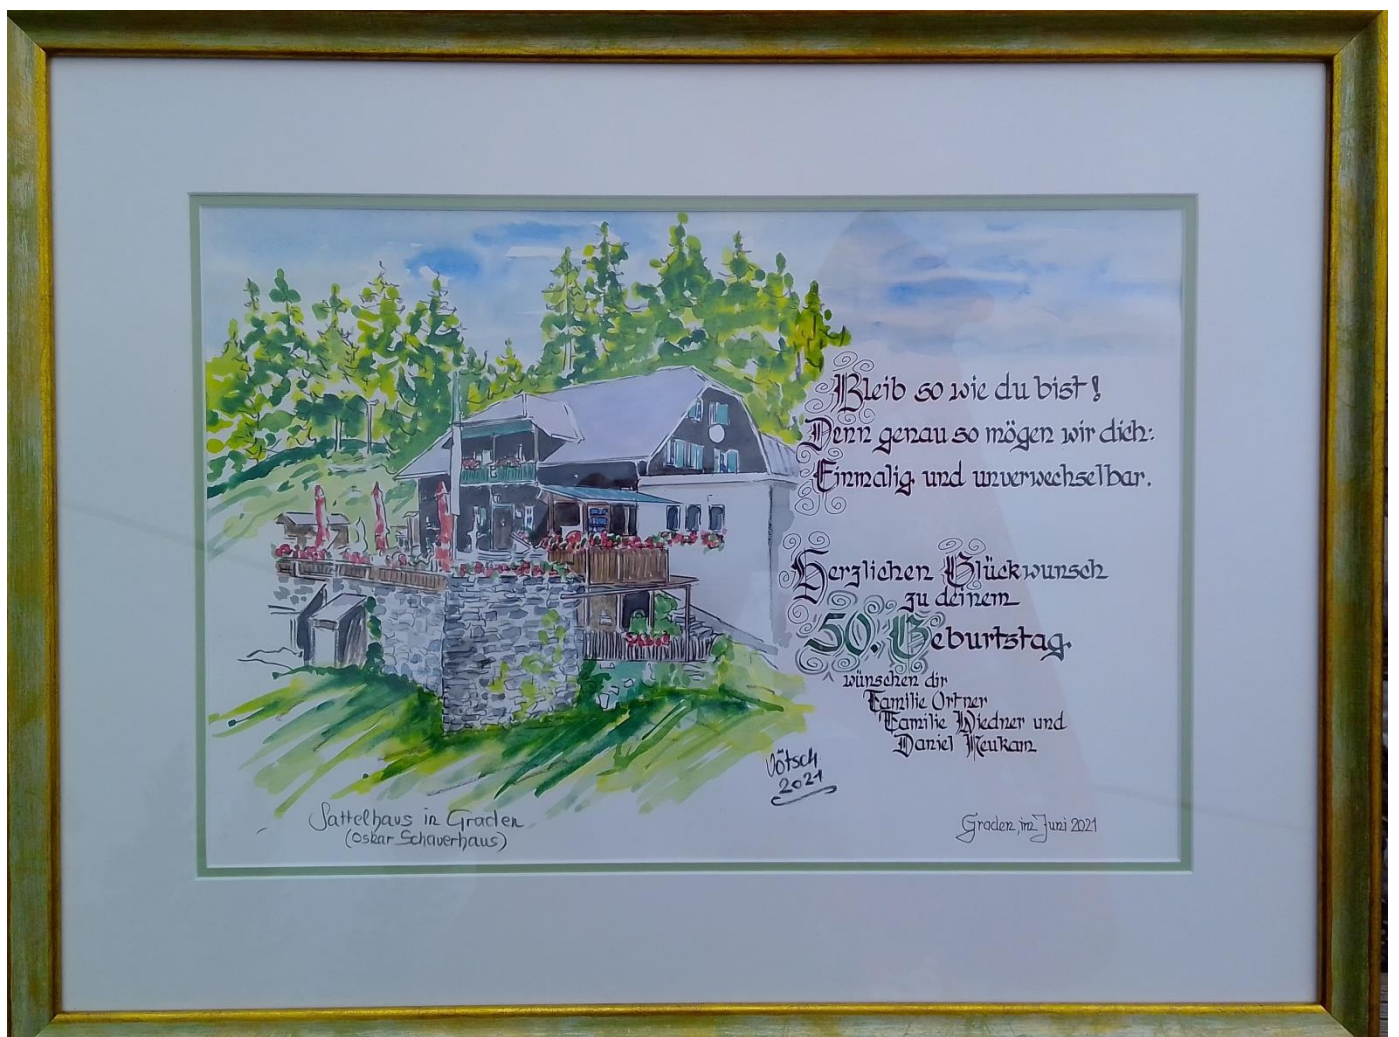 Bleib so wie du bist!
Denn genau so mögen wir dich:
Einmalig und unverwechselbar.
Herzlichen Glückwunsch
zu deinem
50. Geburtstag
wünschen dir
Familie Ortner
Familie Wiedner und
Daniel Neukam
Vötsch
2021
Sattelhaus in Graden
(Oskar Schauerhaus)
Graden, im Juni 2021